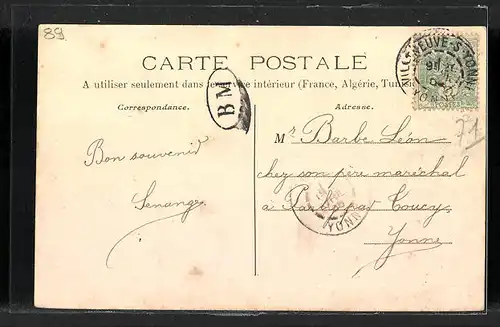 89
CARTE POSTALE
A utiliser seulement dans le service intérieur (France, Algérie, Tunisie
Correspondance.
Adresse.
BM
VILLENEUVE-S-YONNE
Mr Barbe Léon
Bon souvenir
chez son père maréchal
Senange
à par Toucy
Yonne
YONNE
71